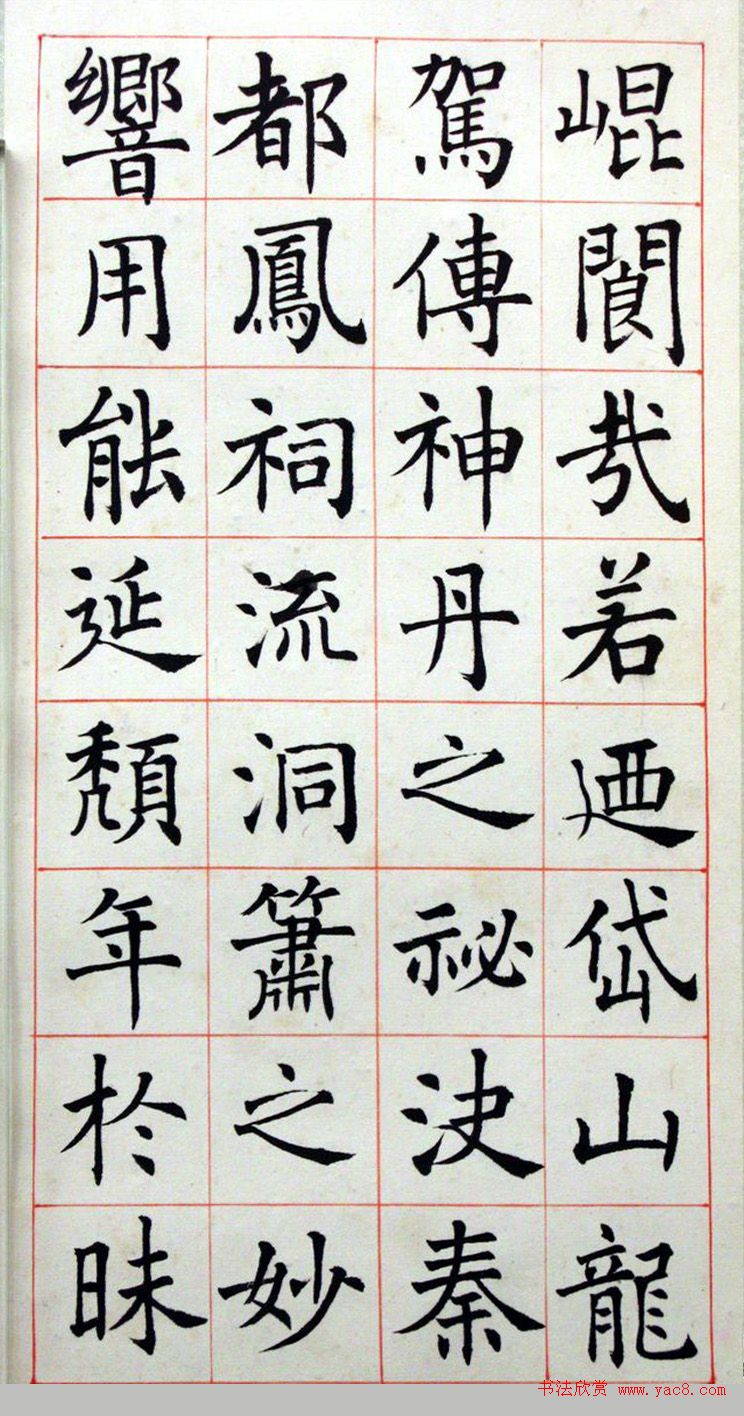 崐閬哉若迺岱山龍
駕傳神丹之祕决秦
都鳳祠流洞簫之妙
響用能延頽年於昧
书法欣赏 www.yac8.com